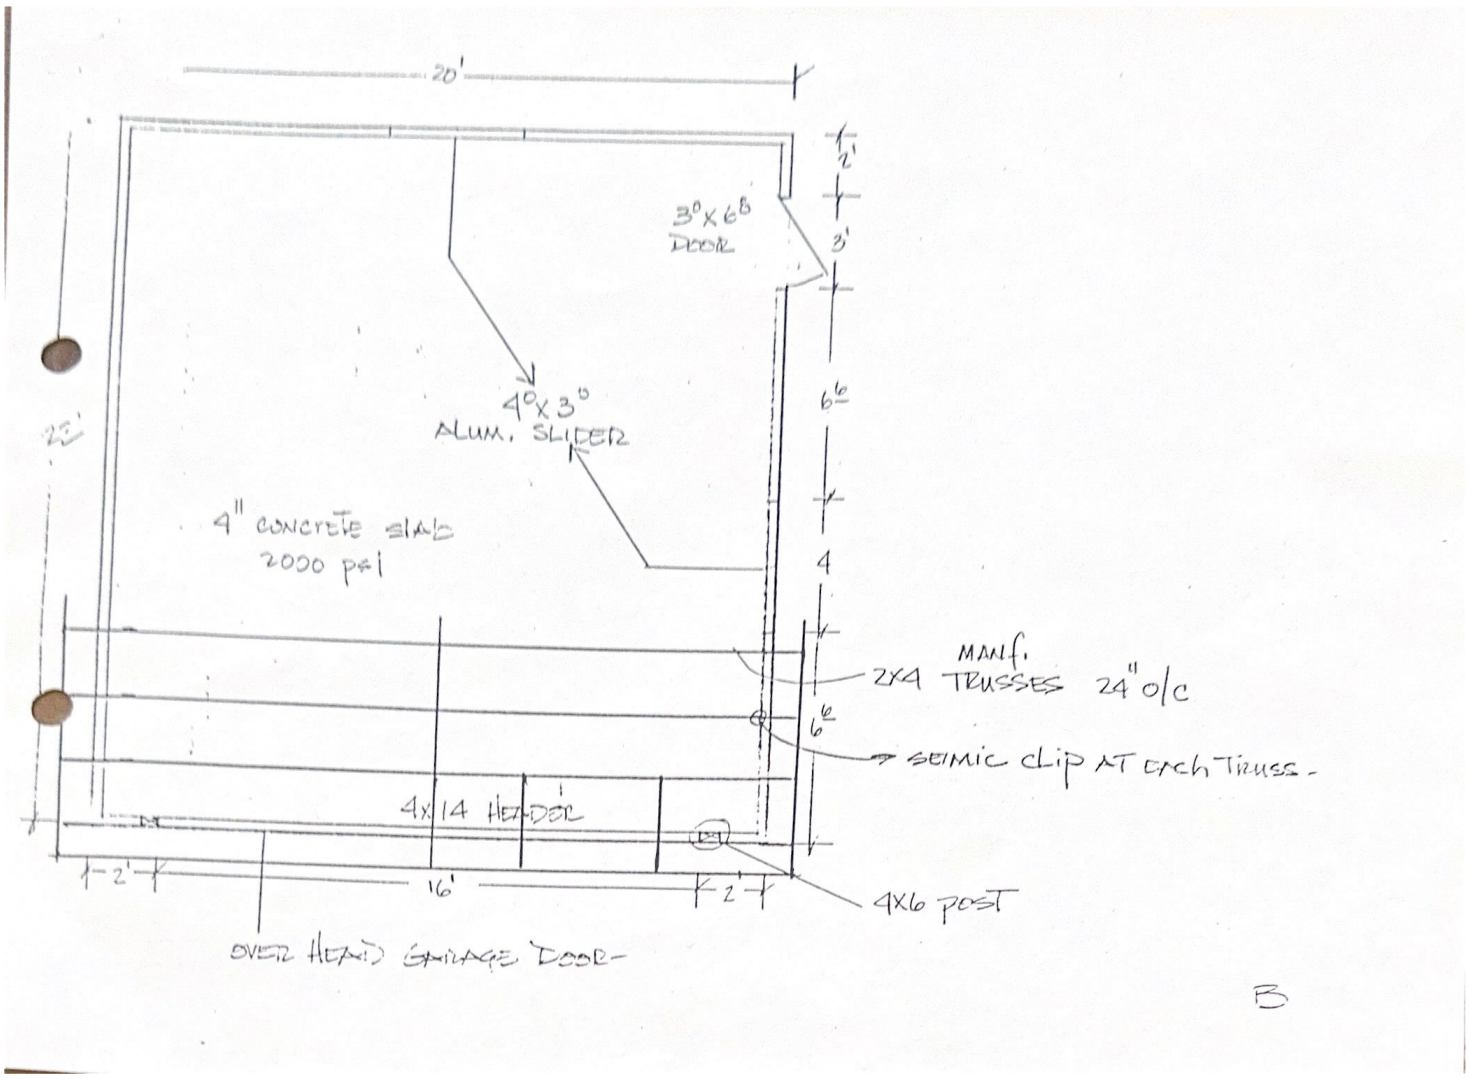 20'
2'
3⁰ x 6⁸
DOOR
3'
6⁶
4⁰ x 3⁰
ALUM. SLIDER
4" CONCRETE SLAB
2000 psi
4
MANf.
2x4 TRUSSES 24" o/c
6⁶
SEIMIC CLIP AT EACH TRUSS-
4x14 HEADER
2'
16'
2'
4x6 POST
OVER HEAD GARAGE DOOR-
B